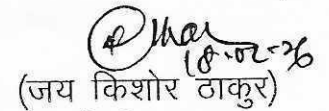 18-02-26
(जय किशोर ठाकुर)